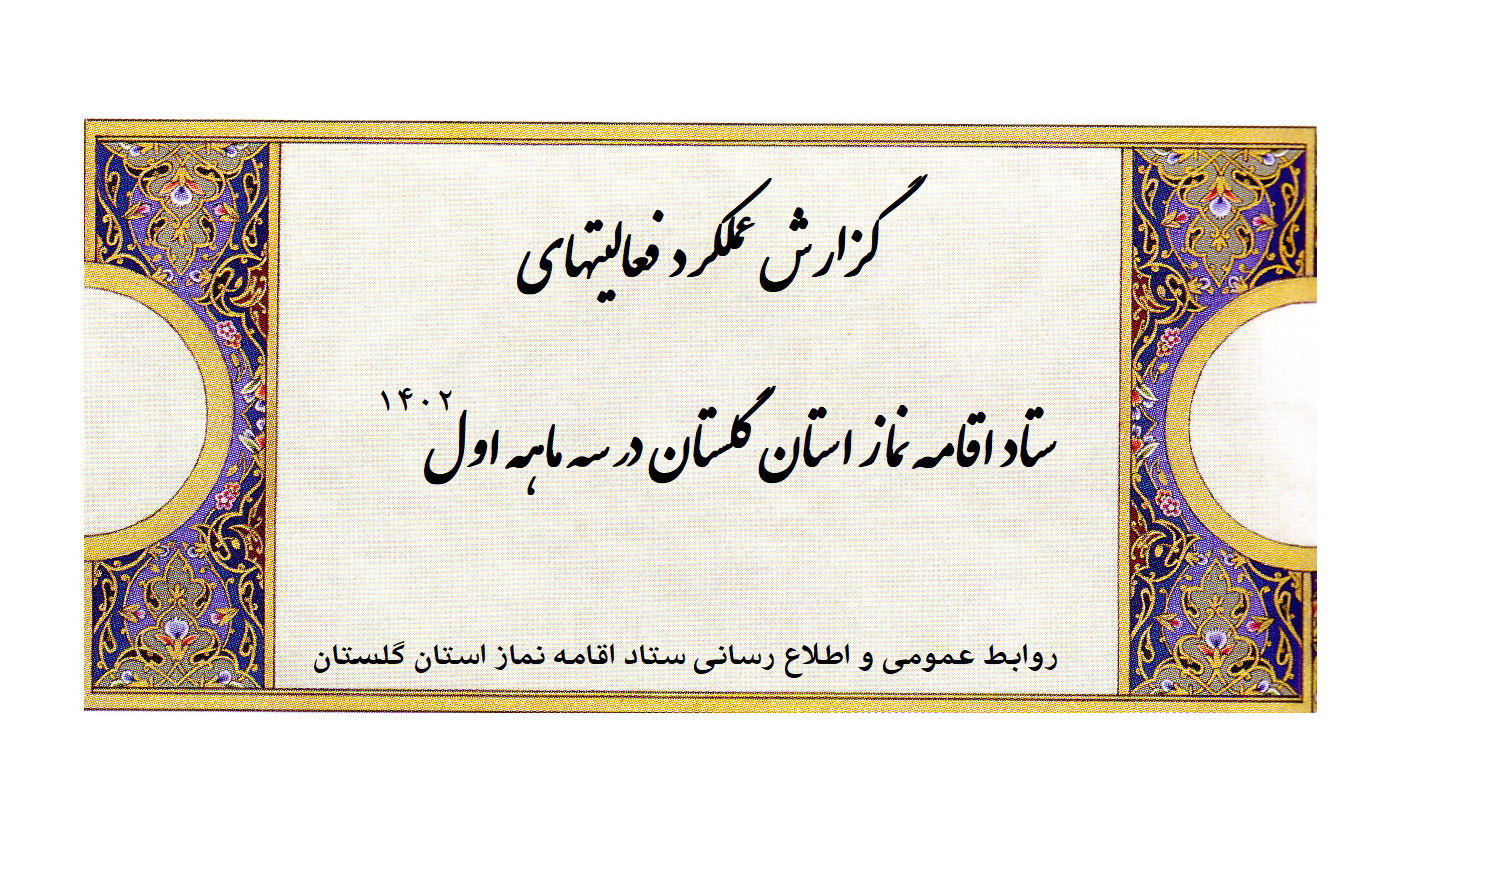 گزارش عملکرد فعالیتهای
ستاد اقامه نماز استان گلستان در سه ماهه اول ۱۴۰۲
روابط عمومی و اطلاع رسانی ستاد اقامه نماز استان گلستان